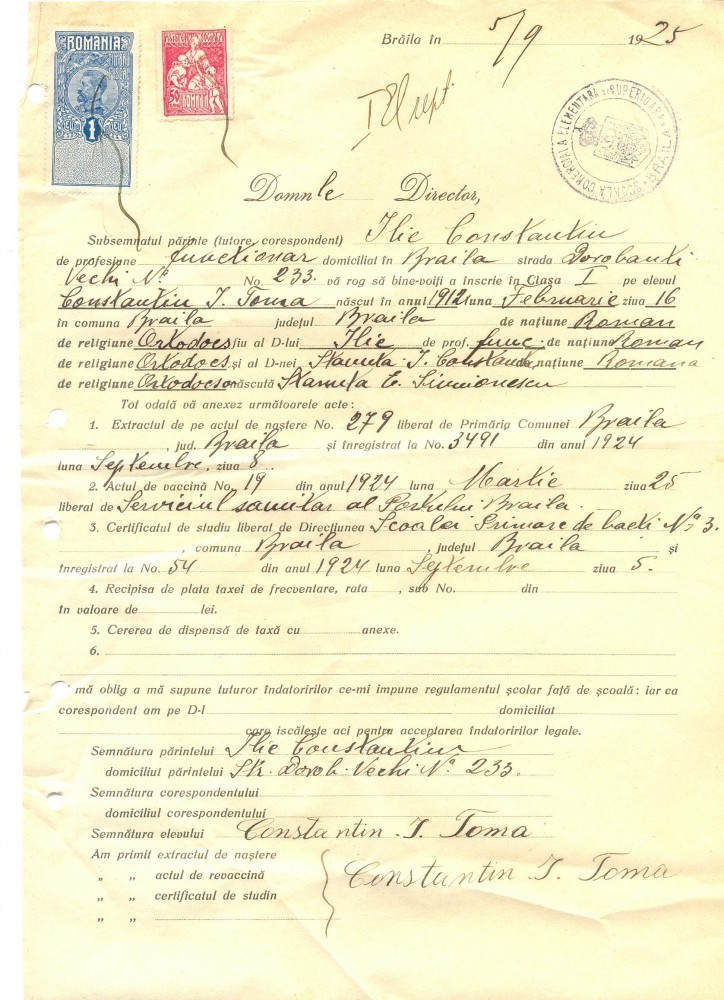 ROMANIA
1
ASISTENȚA SOCIALĂ
50
ROMANIA
Brăila în 5/9 1925
SCOALA COMERCIALA ELEMENTARA si SUPERIOARA BRAILA
Domnle Director,
Subsemnatul părinte (tutore, corespondent) Ilie Constantin
de profesiune functionar domiciliat în Braila strada Dorobanti
Vechi No No. 233. vă rog să bine-voiți a înscrie în Clasa I pe elevul
Constantin I. Toma născut în anul 1912 luna Februarie ziua 16
în comuna Braila județul Braila de națiune Roman
de religiune Ortodocs fiu al D-lui Ilie de prof. func. de națiune Roman
de religiune Ortodocs și al D-nei Stanuta I. Constantin de națiune Romana
de religiune Ortodocs născută Stanuta E. Simionescu
Tot odată vă anexez următoarele acte:
1. Extractul de pe actul de naștere No. 279 liberat de Primăria Comunei Braila
, jud. Braila și înregistrat la No. 3491 din anul 1924
luna Septembre, ziua 8
2. Actul de vaccină No. 19 din anul 1924 luna Martie ziua 25
liberat de Serviciul sanitar al Portului Braila.
3. Certificatul de studiu liberat de Direcțiunea Scoalei Primare de baeti No 3.
, comuna Braila , județul Braila și
înregistrat la No. 54 din anul 1924 luna Septembre ziua 5.
4. Recipisa de plata taxei de frecventare, rata , sub No. din
în valoare de lei.
5. Cererea de dispensă de taxă cu anexe.
6.
mă oblig a mă supune tuturor îndatoririlor ce-mi impune regulamentul școlar față de școală: iar ca
corespondent am pe D-l domiciliat
care iscălește aci pentru acceptarea îndatoririlor legale.
Semnătura părintelui Ilie Constantin
domiciliul părintelui Str. Dorob. Vechi No. 233.
Semnătura corespondentului
domiciliul corespondentului
Semnătura elevului Constantin I. Toma
Am primit extractul de naștere
„ „ actul de revaccină Constantin I. Toma
„ „ certificatul de studin
„ „